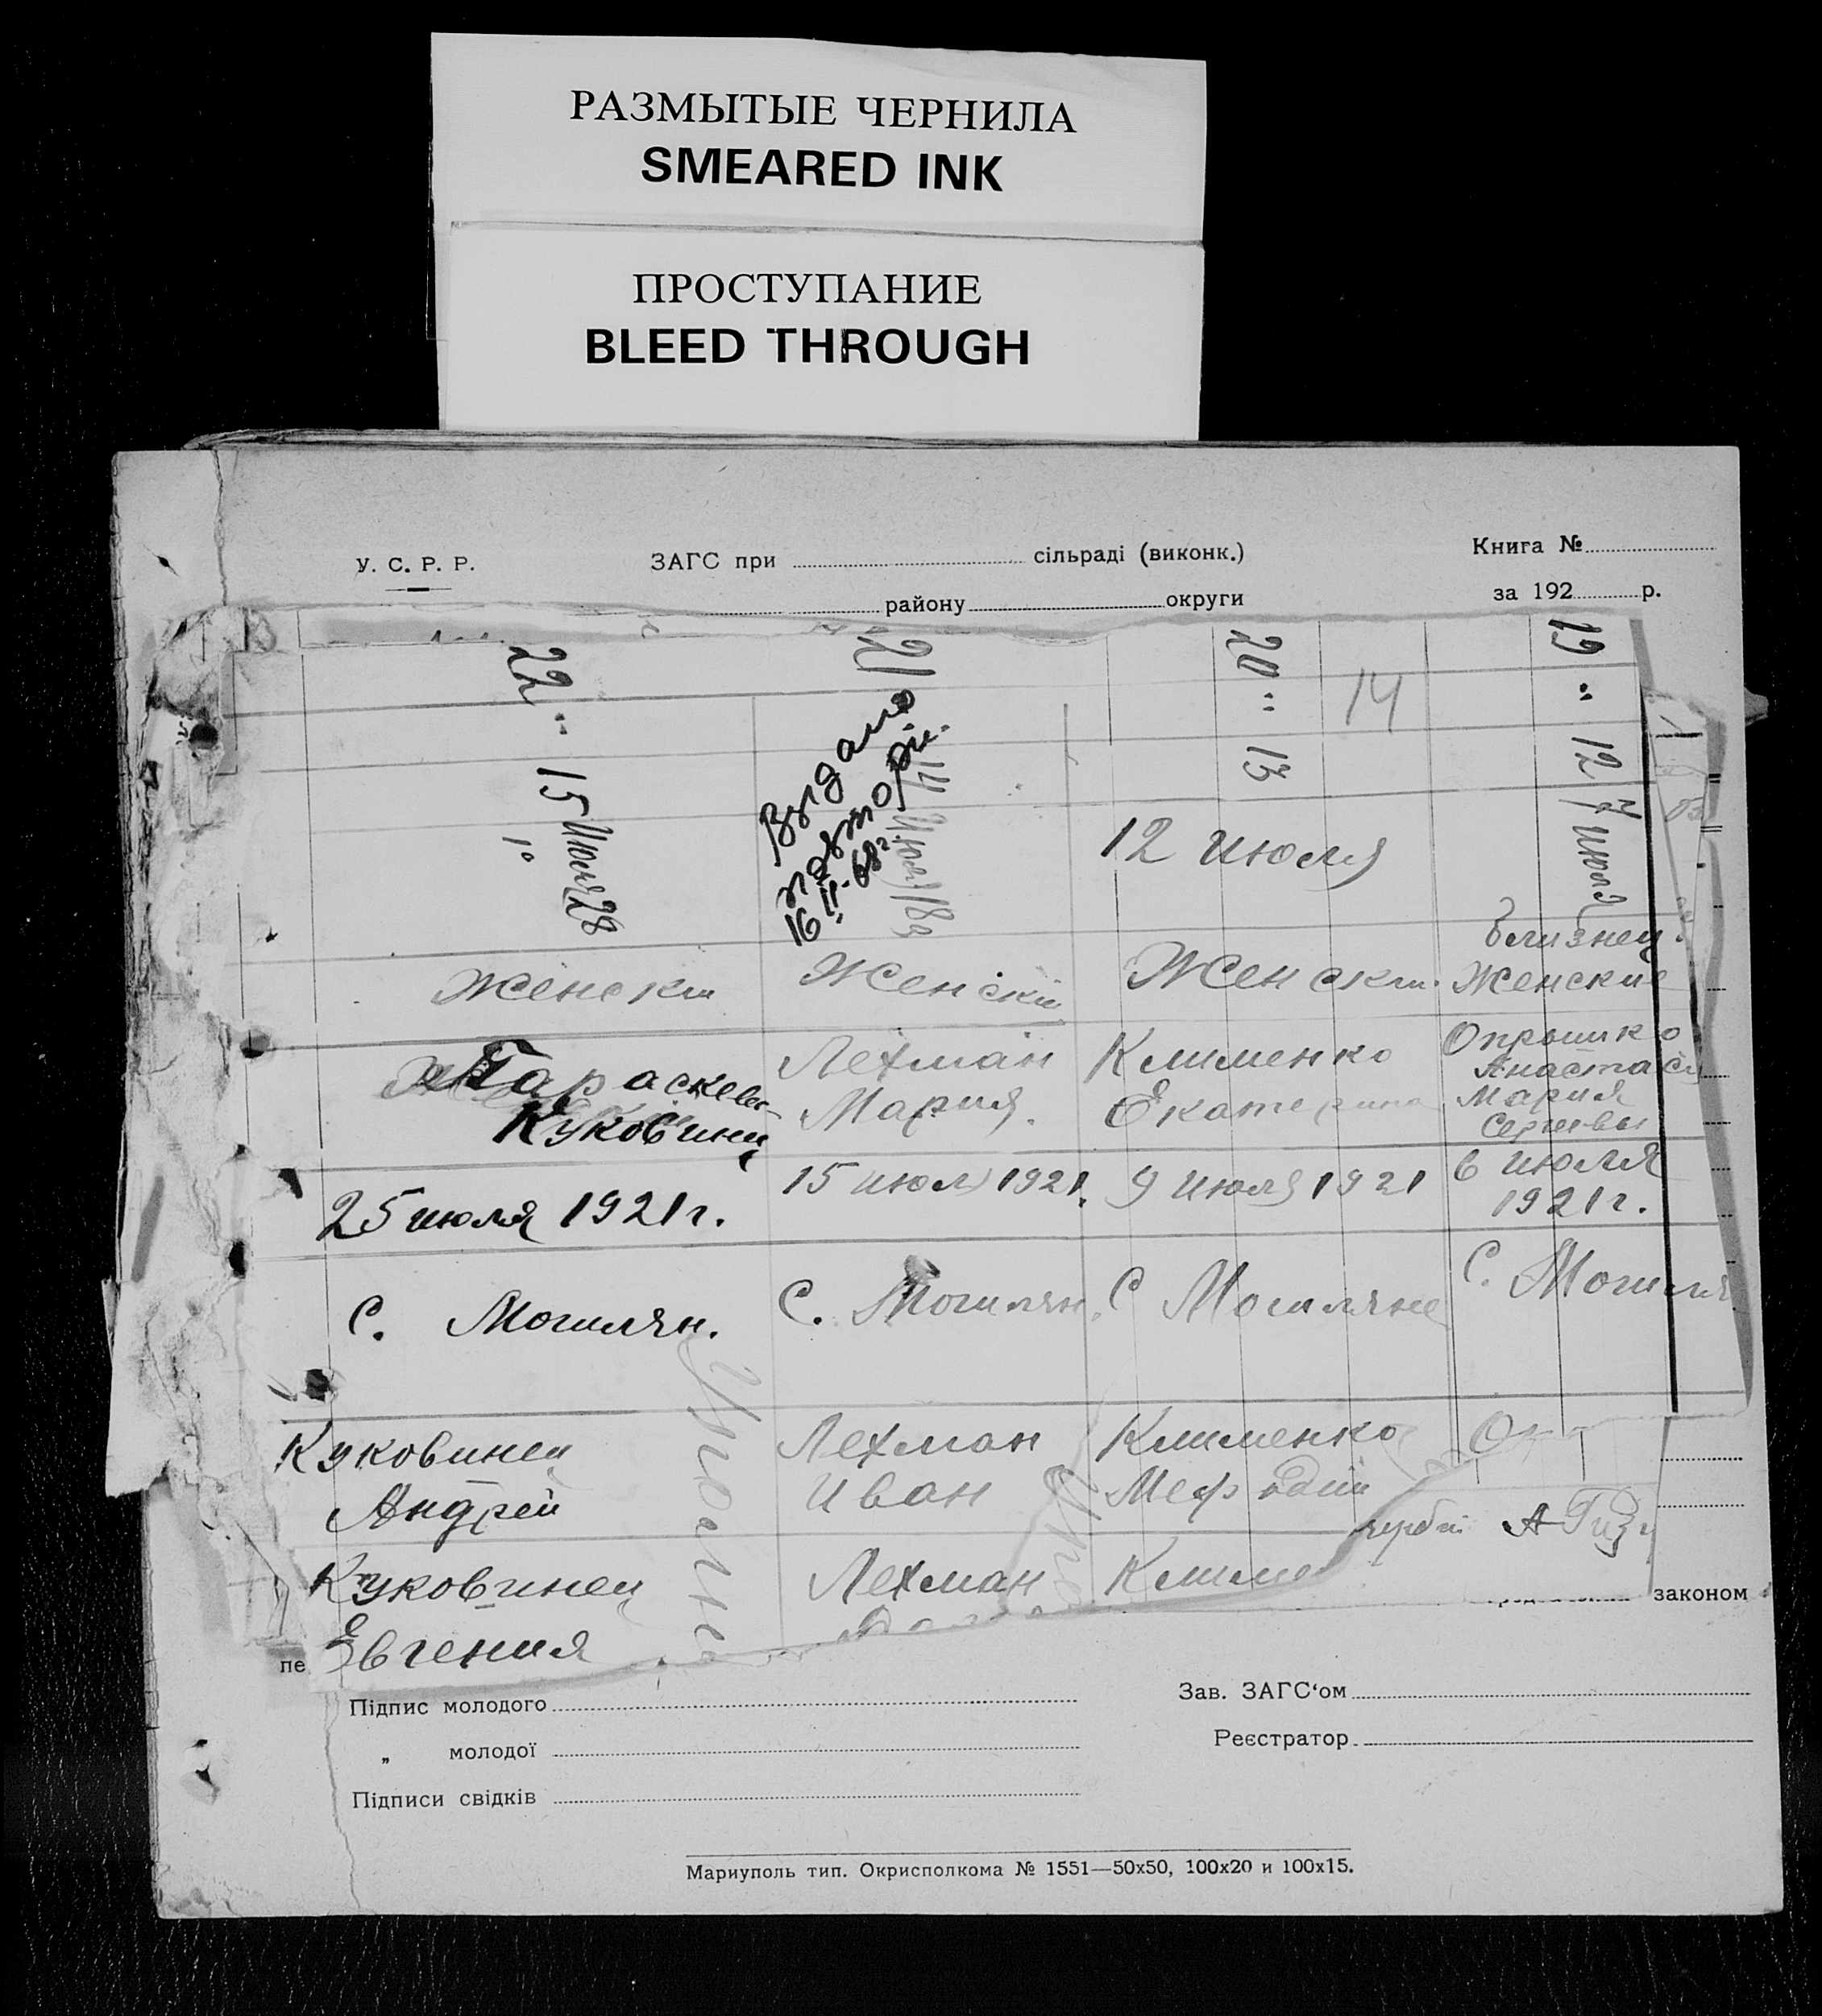 РАЗМЫТЫЕ ЧЕРНИЛА
SMEARED INK
ПРОСТУПАНИЕ
BLEED THROUGH
У. С. Р. Р.
ЗАГС при сільраді (виконк.)
Книга №
району округи
за 192 р.
22 21 20 19
" " "
14
15 14 13 12
Июля 28 Июля 12 июля 7 июля
Видано
повторн.
16 II-68г
близнец.
Женски Женскі Женски Женские
Параскева
Куковинец
Лехман
Мария.
Клименко
Екатерина
Опрышко
Анастасія
Мария
Сергеевы
25 июля 1921 г.
15 июля 1921. 9 июля 1921
6 июля
1921 г.
С. Могилян. С. Могилян. С Могиляне С. Могиля
Куковинец
Андрей
Лехман
Иван
Клименко
Мефодий
Куковинец
Евгения
Лехман
Климе
законом
пе
Підпис молодого
„ молодої
Підписи свідків
Зав. ЗАГС‘ом
Реєстратор
Мариуполь тип. Окрисполкома № 1551—50х50, 100х20 и 100х15.